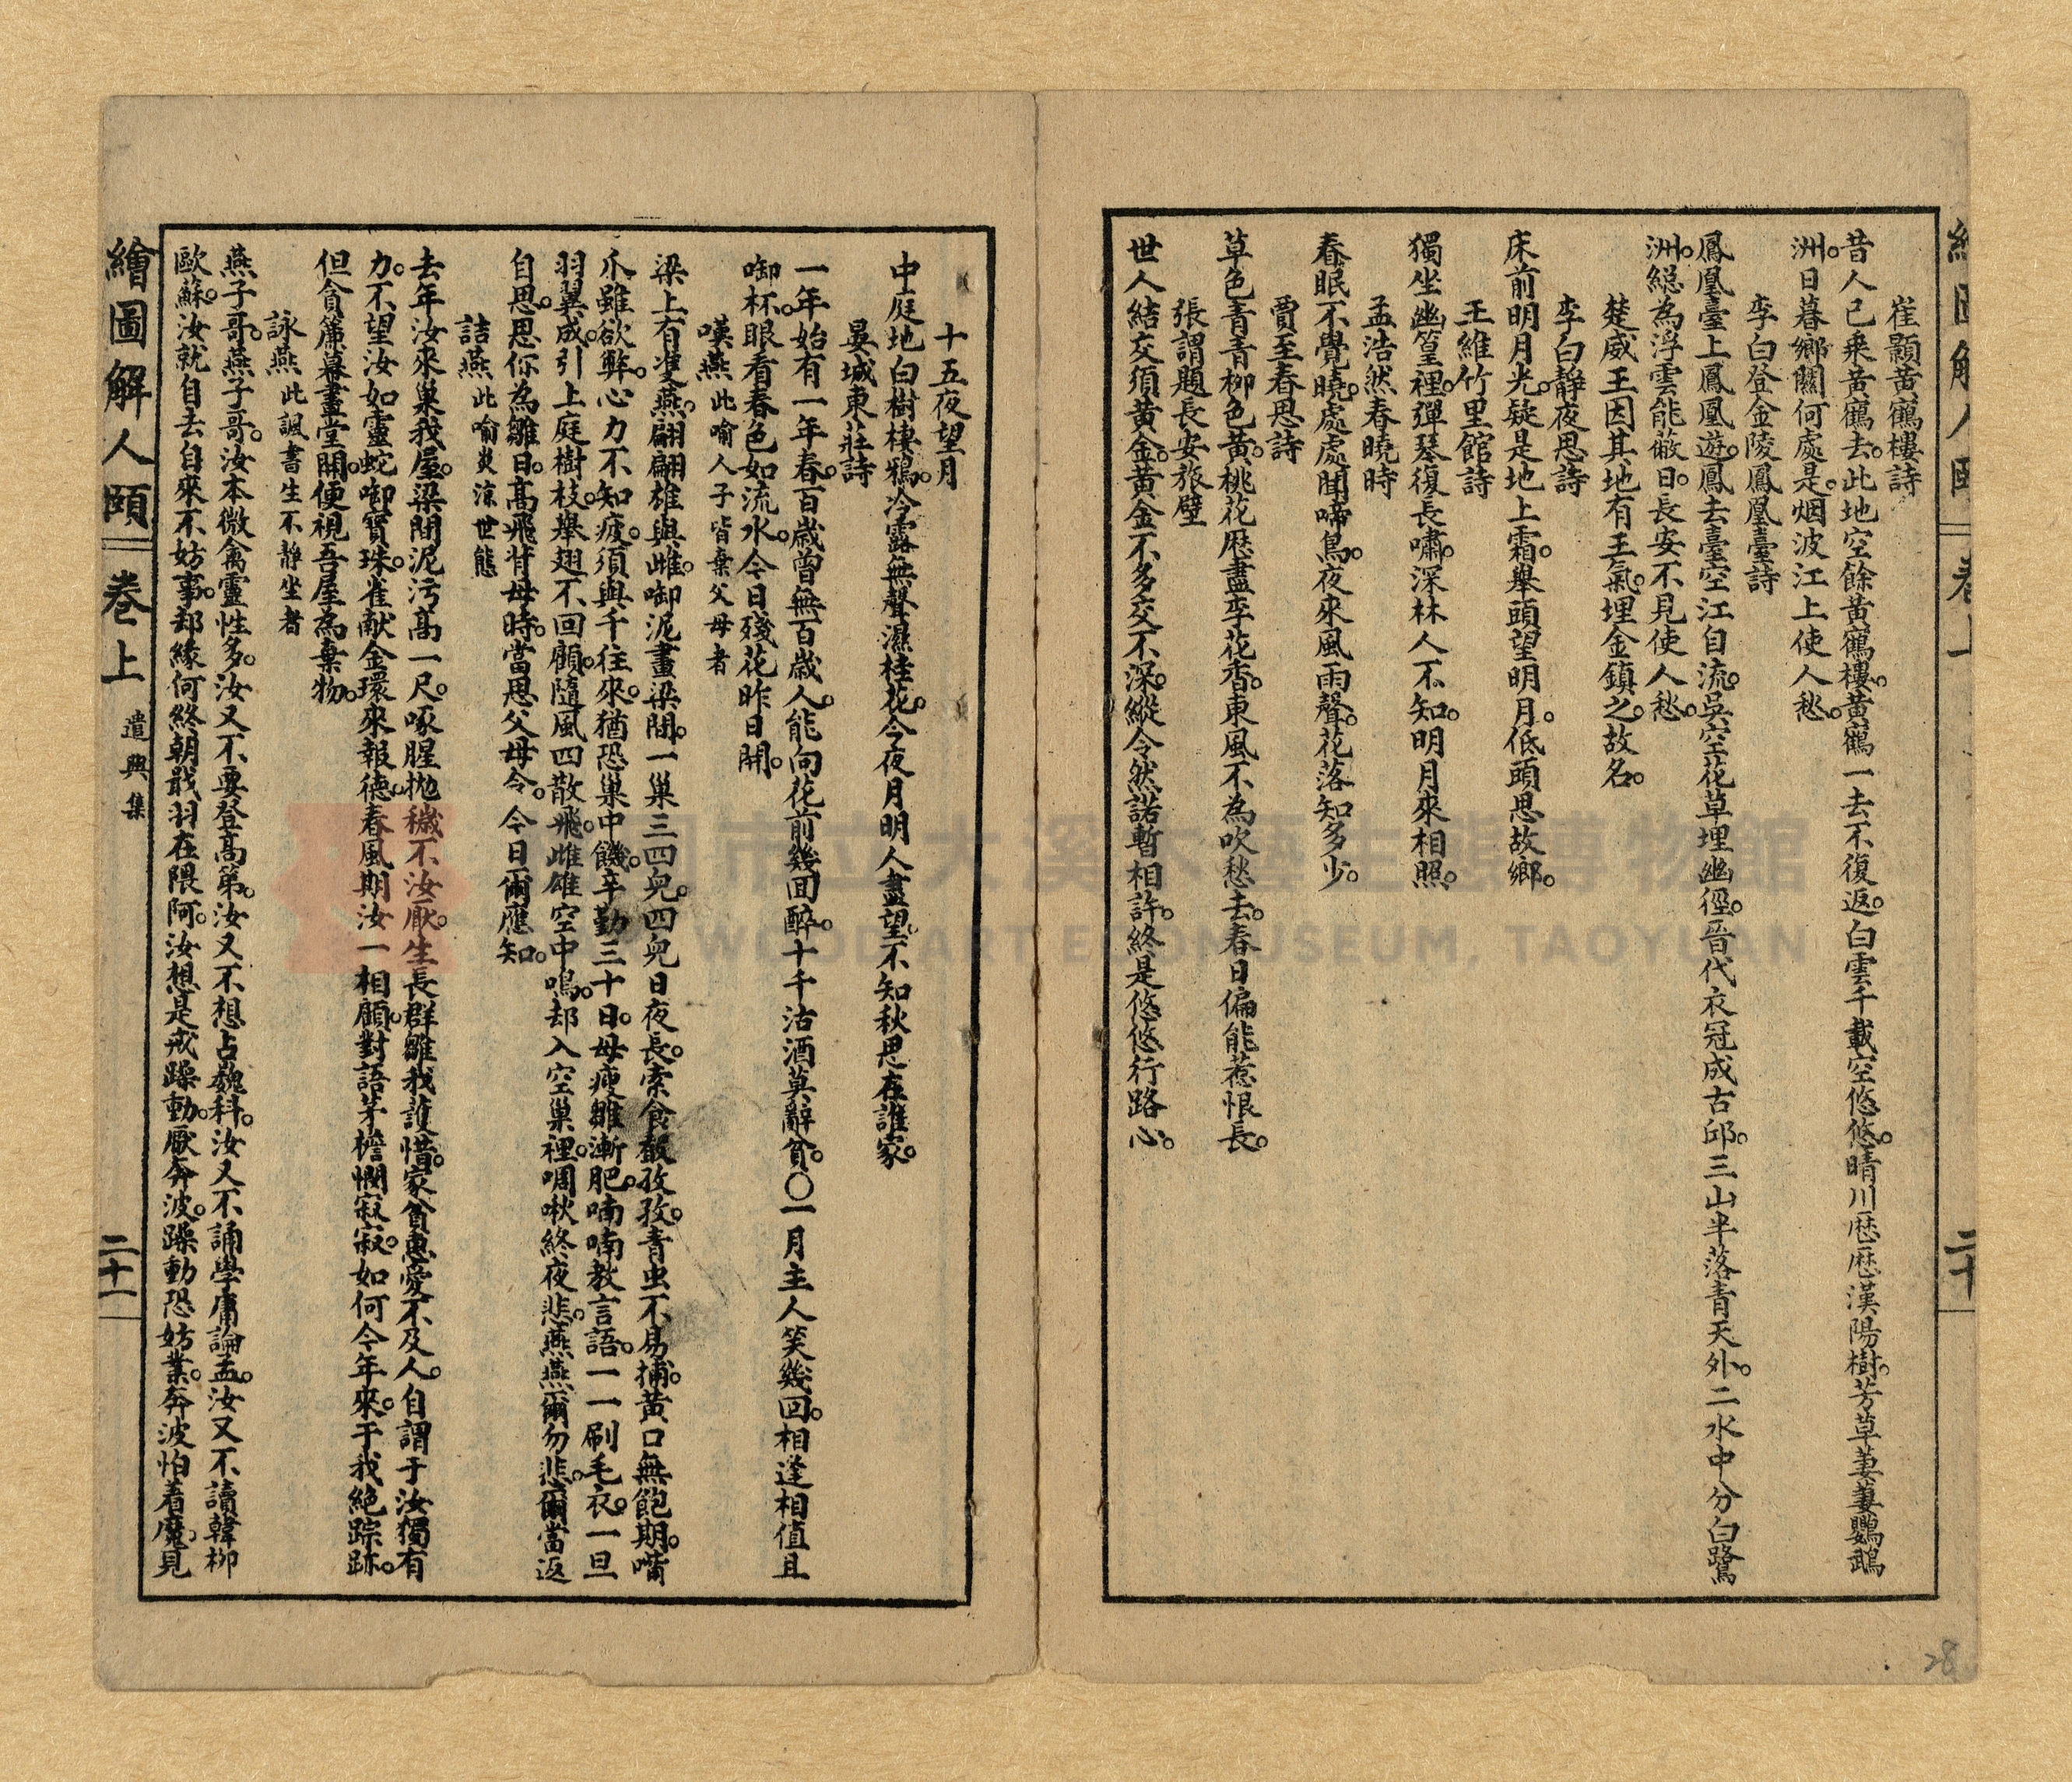 崔顥黃鶴樓詩
昔人已乘黃鶴去。此地空餘黃鶴樓。黃鶴一去不復返。白雲千載空悠悠。晴川歷歷漢陽樹。芳草萋萋鸚鵡
洲。日暮鄉關何處是。烟波江上使人愁。
李白登金陵鳳凰臺詩
鳳凰臺上鳳凰遊。鳳去臺空江自流。吳空花草埋幽徑。晉代衣冠成古邱。三山半落青天外。二水中分白鷺
洲。總為浮雲能蔽日。長安不見使人愁。
楚威王因其地有王氣。埋金鎮之。故名。
李白靜夜思詩
床前明月光。疑是地上霜。舉頭望明月。低頭思故鄉。
王維竹里館詩
獨坐幽篁裡。彈琴復長嘯。深林人不知。明月來相照。
孟浩然春曉時
春眠不覺曉。處處聞啼鳥。夜來風雨聲。花落知多少。
賈至春思詩
草色青青柳色黃。桃花歷盡李花香。東風不為吹愁去。春日偏能惹恨長。
張謂題長安旅壁
世人結交須黃金。黃金不多交不深。縱令然諾暫相許。終是悠悠行路心。
十五夜望月
中庭地白樹棲鴉。冷露無聲濕桂花。今夜月明人盡望。不知秋思在誰家。
晏城東莊詩
一年始有一年春。百歲曾無百歲人。能向花前幾回醉。十千沽酒莫辭貧。〇一月主人笑幾回。相逢相值且
啣杯。眼看春色如流水。今日殘花昨日開。
嘆燕 此喻人子皆棄父母者
梁上有雙燕。翩翩雄與雌。啣泥畫梁間。一巢三四兒。四兒日夜長。索食聲孜孜。青虫不易捕。黃口無飽期。嘴
爪雖欲弊。心力不知疲。須與千往來。猶恐巢中饑。辛勤三十日。母瘦雛漸肥。喃喃教言語。一一刷毛衣。一旦
羽翼成。引上庭樹枝。舉翅不回顧。隨風四散飛。雌雄空中鳴。却入空巢裡。啁啾終夜悲。燕燕爾勿悲。爾當返
自思。思你為雛日。高飛背母時。當思父母令。今日爾應知。
詰燕 此喻炎涼世態
去年汝來巢我屋。梁間泥污高一尺。啄腥拋穢不汝厭。生長群雛我護惜。家貧惠愛不及人。自謂于汝獨有
力。不望汝如靈蛇啣寶珠。雀献金環來報德。春風期汝一相顧。對語茅檐憫寂寂。如何今年來。于我絕踪跡。
但貪簾幕畫堂開。便視吾屋為棄物。
詠燕 此諷書生不靜坐者
燕子哥。燕子哥。汝本微禽靈性多。汝又不要登高第。汝又不想占巍科。汝又不誦學庸論孟。汝又不讀韓柳
歐蘇。汝就自去自來不妨事。却緣何終朝戢羽在隈阿。汝想是戒躁動。厭奔波。躁動恐妨業。奔波怕着魔。見
繪圖解人頤 卷上 遣興集 二十一
卷上 二十
28